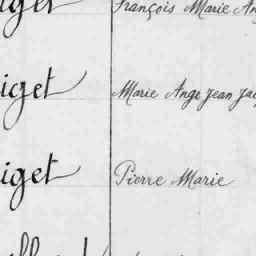 iget François Marie An
iget Marie Ange Jean Ja
iget Pierre Marie